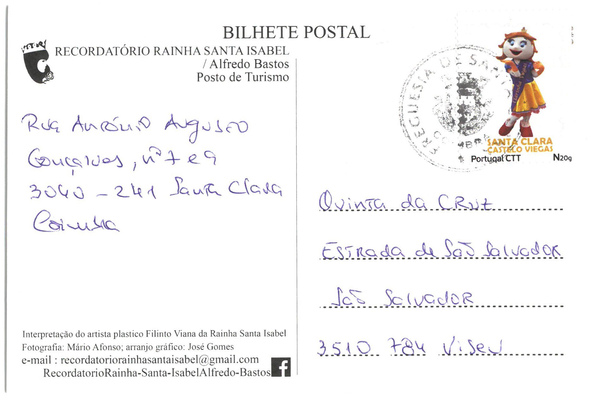 BILHETE POSTAL
RECORDATÓRIO RAINHA SANTA ISABEL
/ Alfredo Bastos
Posto de Turismo
Rua António Augusto
Gonçalves, nº 7 e 9
3040 - 241 Santa Clara
Coimbra
FREGUESIA DE SANT
SANTA CLARA
CASTELO VIEGAS
Portugal CTT N20g
Quinta da CRUZ
ESTRADA de São Salvador
São Salvador
3510 784 Viseu
Interpretação do artista plastico Filinto Viana da Rainha Santa Isabel
Fotografia: Mário Afonso; arranjo gráfico: José Gomes
e-mail : recordatoriorainhasantaisabel@gmail.com
RecordatorioRainha-Santa-IsabelAlfredo-Bastos